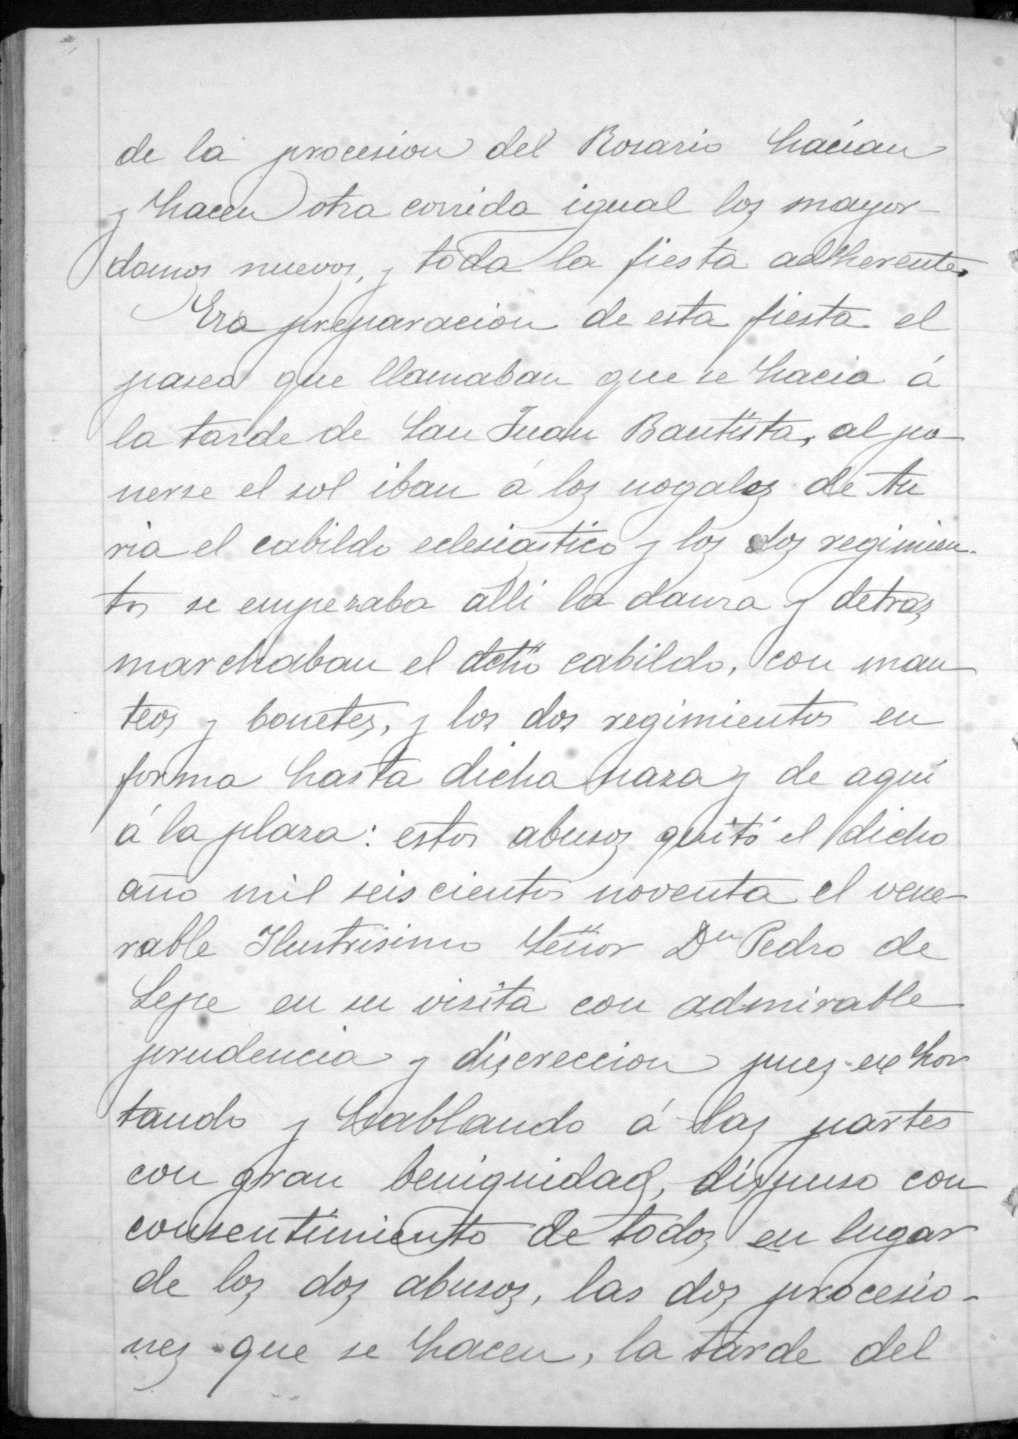 de la procesion del Rosario hacían
y hacen otra corrida igual los mayor-
domos nuevos, y toda la fiesta adherente.
Era preparacion de esta fiesta el
paseo que llamaban que se hacia á
la tarde de San Juan Bautista, al po-
nerse el sol iban á los nogales de tu
ria el cabildo eclesiastico y los dos regimien-
tos se empezaba alli la danza y detras
marchaban el dcho cabildo, con man
teos y bonetes, y los dos regimientos en
forma hasta dicha naza y de aqui
á la plaza: estos abusos quitó el dicho
año mil seiscientos noventa el vene-
rable Ilustrisimo Señor Dn Pedro de
Lepe en su visita con admirable
prudencia y discreccion pues exhor
tando y hablando á las partes
con gran benignidad, dispuso con
consentimiento de todos en lugar
de los dos abusos, las dos procesio-
nes que se hacen, la tarde del